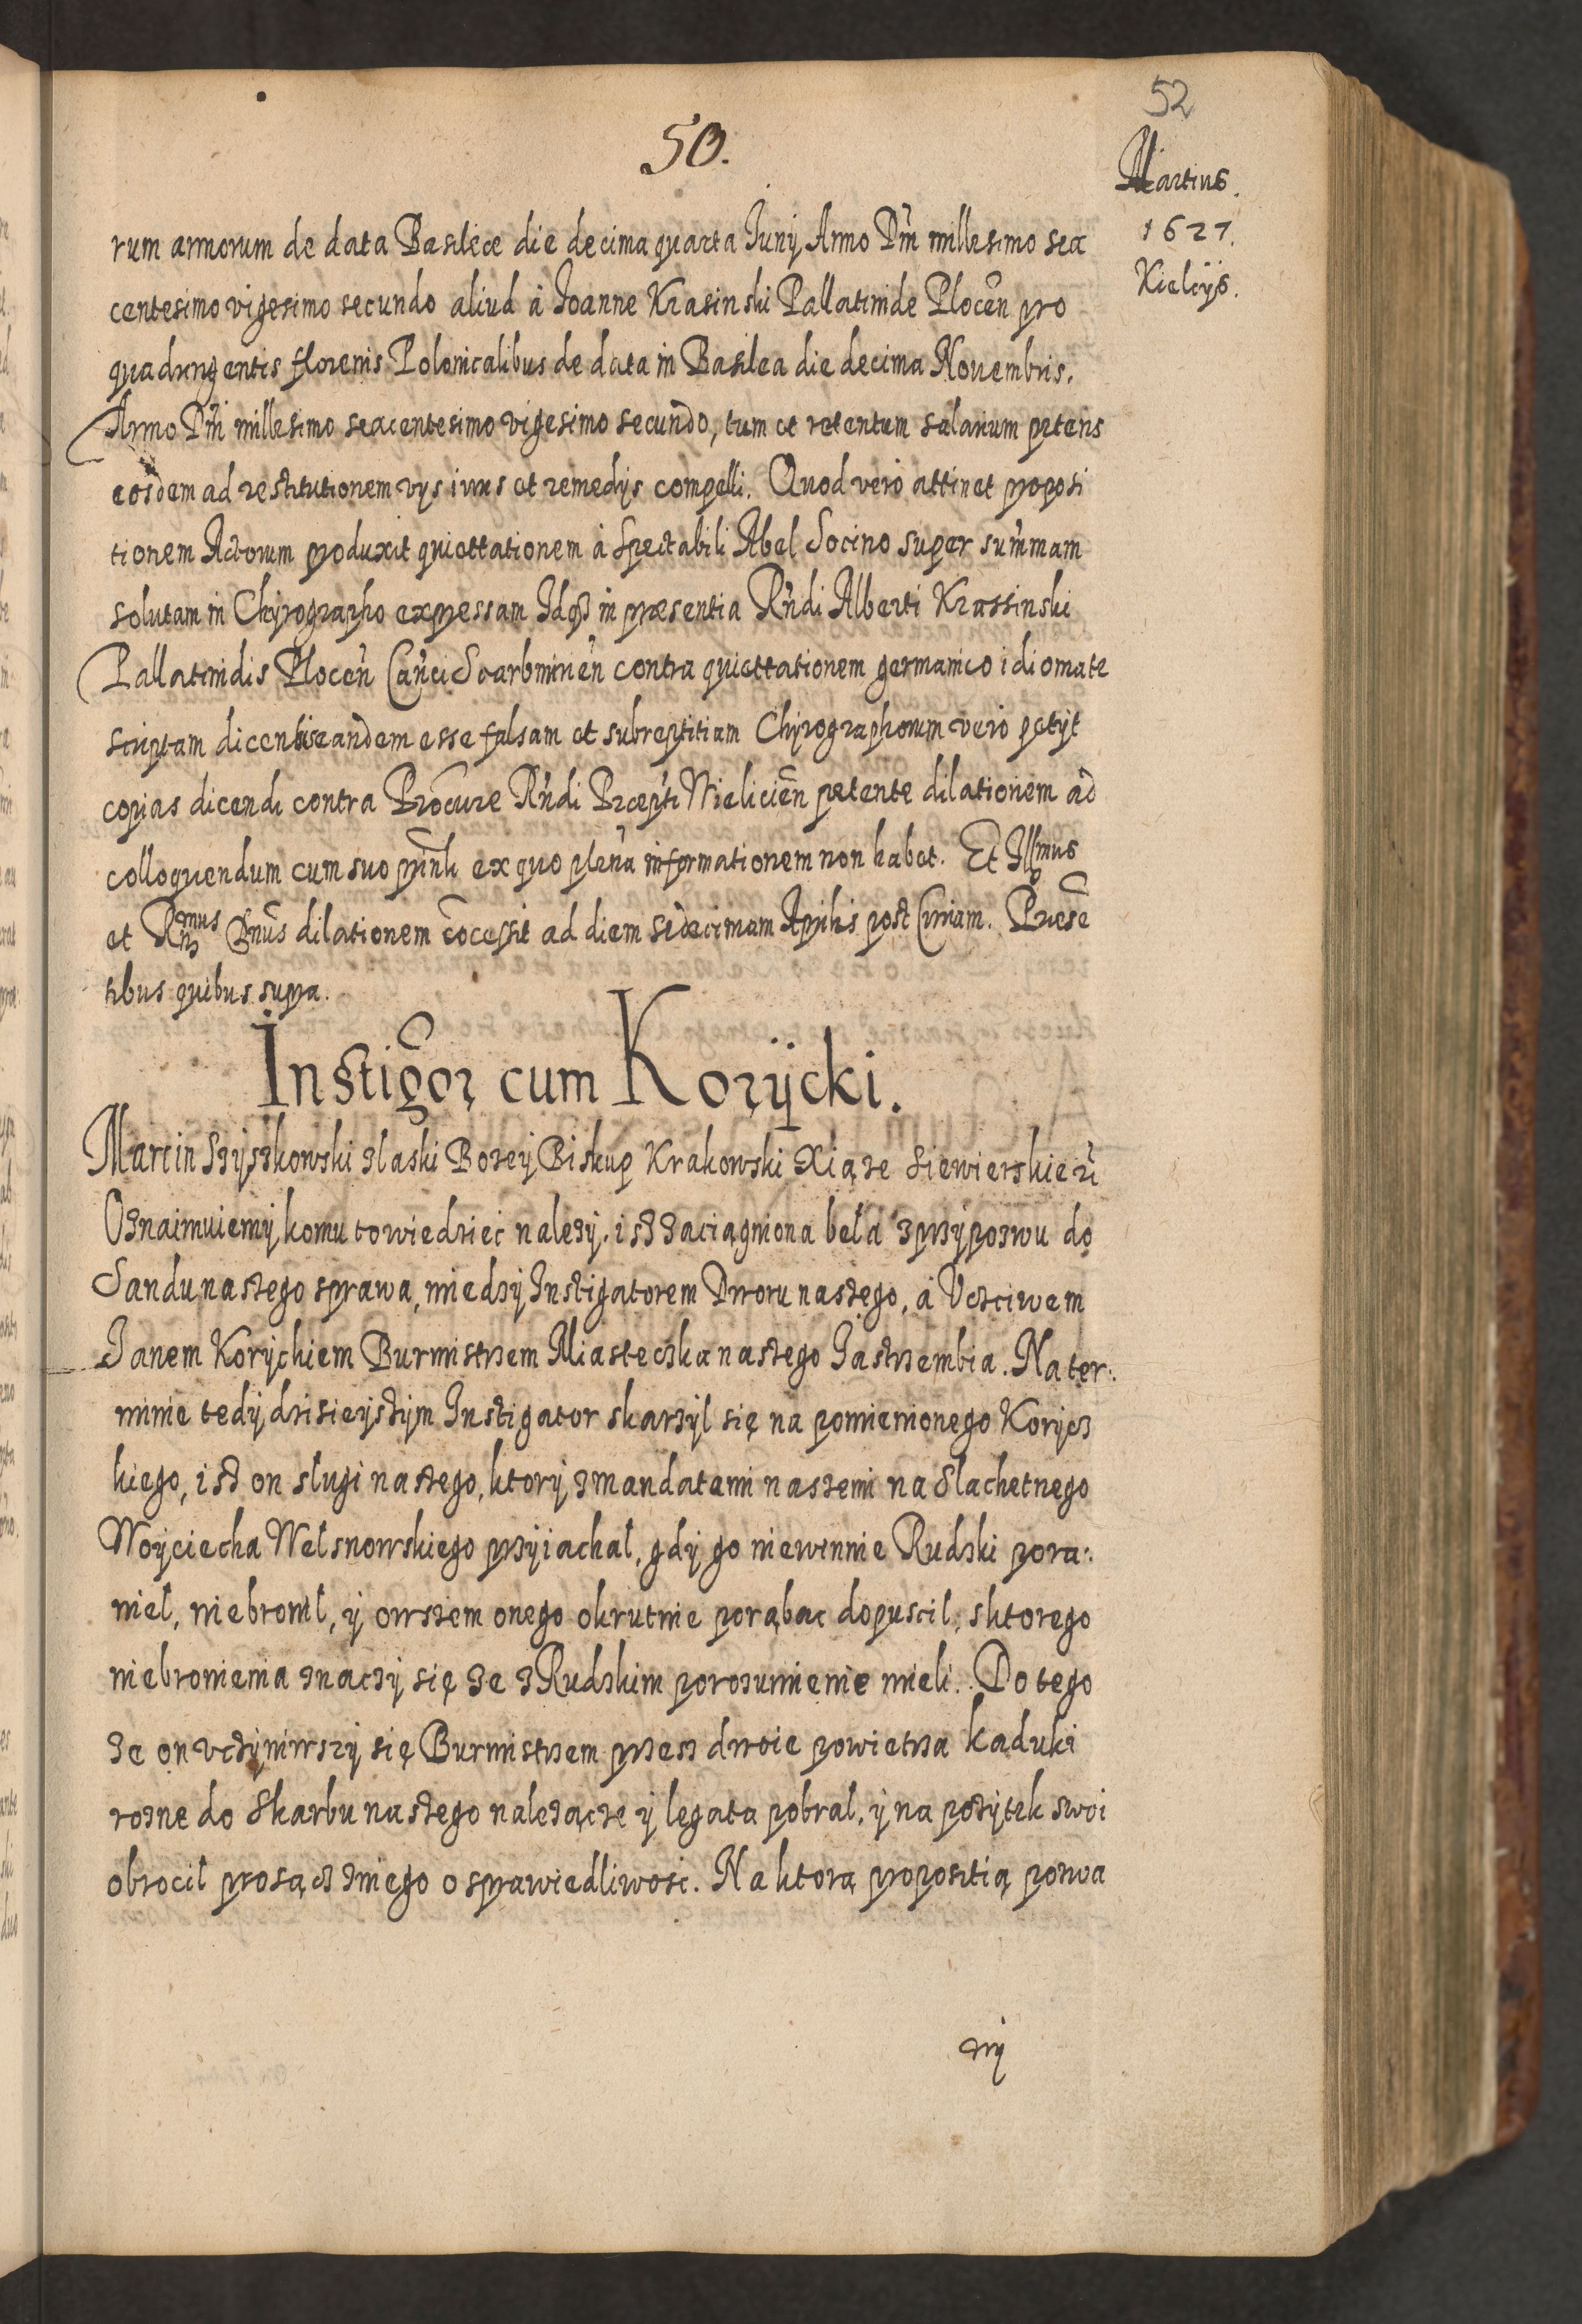 52
50.
Martius.
1627.
Kielcÿs.
rum armorum de data Basileæ die decima quarta Iunÿ Anno Dm̃ millesimo sex
centesimo vigesimo secundo aliud à Ioanne Krasinski Pallatinide Plocen̄ pro
quadringentis florenis Polonicalibus de data in Basilea die decima Nouembris.
Anno Dm̃ millesimo sexcentesimo vigesimo secundo, tum et retentum salarium petens
eosdem ad restitutionem vÿs iuris et remedÿs compelli. Quod vero attinet proposi
tionem Actorum produxit quiettationem à Spectabili Abel Socino super sum̃mam
solutam in Chÿrographo expressam Idqß in præsentia Rn̄di Alberti Krassinski
Pallatinidis Plocen̄ Can̄ci Scarbmirien̄ contra quiettationem germanico idiomate
scriptam dicentis eandem esse falsam et subreptitiam Chÿrographorum vero petÿt
copias dicendi contra Procure Rn̄di Præpti Wielicien̄ petente dilationem ad
colloquendum cum suo prin̄li ex quo plena informationem non habet. Et Illmus
et Rmus Dnūs dilationem cōcessit ad diem sedecimam Aprilis post Curiam. Præsē
tibus quibus supra.
Instigor̃ cum Korÿcki.
Marcin Szÿszkowski z laski Bozeÿ Biskup Krakowski Xiąze Siewierskie ec̃
Oznaimuiemÿ komu to wiedziec nalezÿ. isz zaciągniona beła z przÿpozwu do
Sandu naszego sprawa, miedzÿ Instigatorem Dworu naszego, a Vczciwem
Ianem Korÿckiem Burmistrzem Miasteczka naszego Iastrzembia. Na ter:
minie tedÿ dzisieÿszÿm Instigator skarzÿl się na pomienionego Korÿcz
kiego, isz on sługi naszego, ktorÿ z mandatami naszemi na Slachetnego
Woÿciecha Wełsnowskiego przÿiachał, gdÿ go niewinnie Rudzki pora:
nieł, niebronił, ÿ owszem onego okrutnie porąbac dopuscił, sktorego
niebronienia znaczÿ się ze z Rudzkim porozumienie mieli. Do tego
ze on vczÿniwszÿ się Burmistrzem przesz dwoie powietrza kaduki
rozne do Skarbu naszego nalezącze ÿ legata pobrał, ÿ na pozÿtek swoi
obrocił prosącz zniego o sprawiedliwosc. Na ktorą propositią pozwa
nÿ